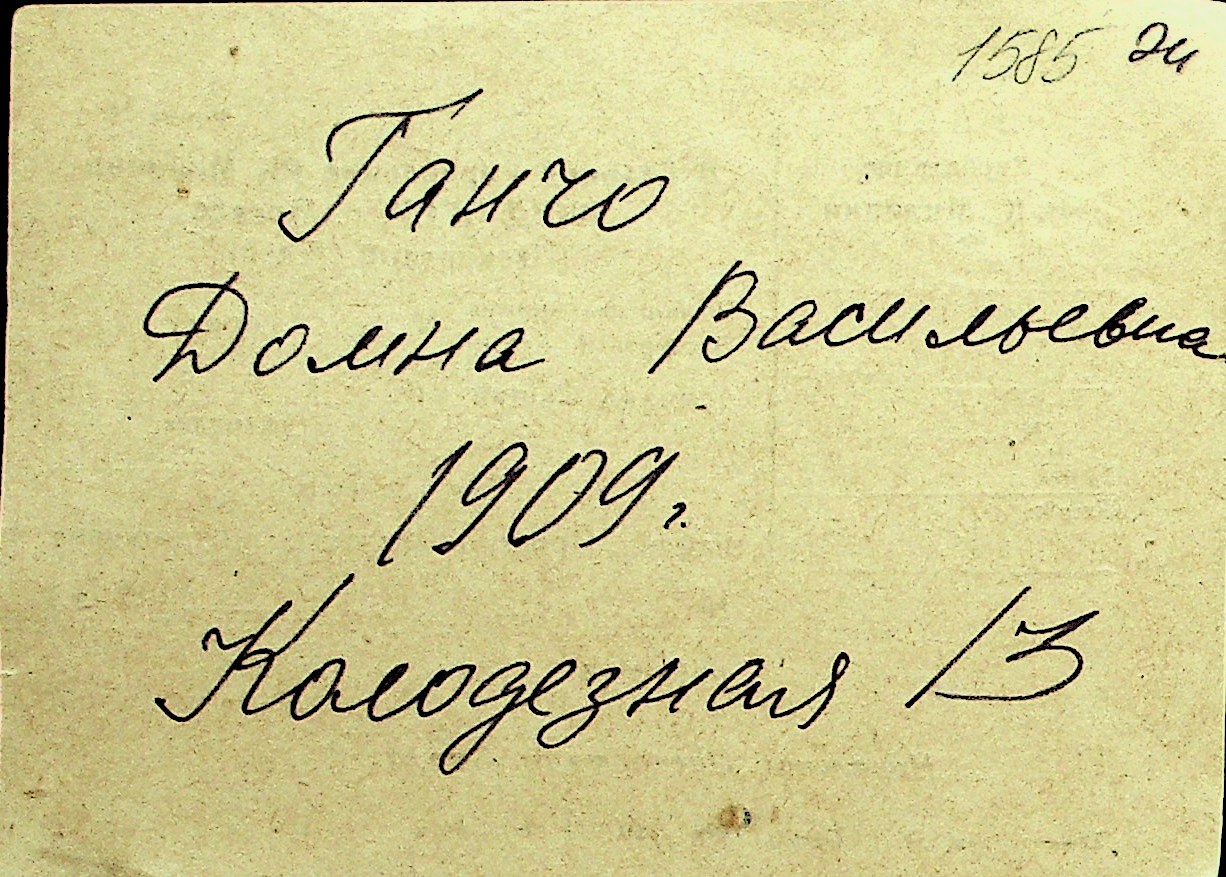 1585 эи
Ганчо
Домна Васильевна
1909 г.
Колодезная 13